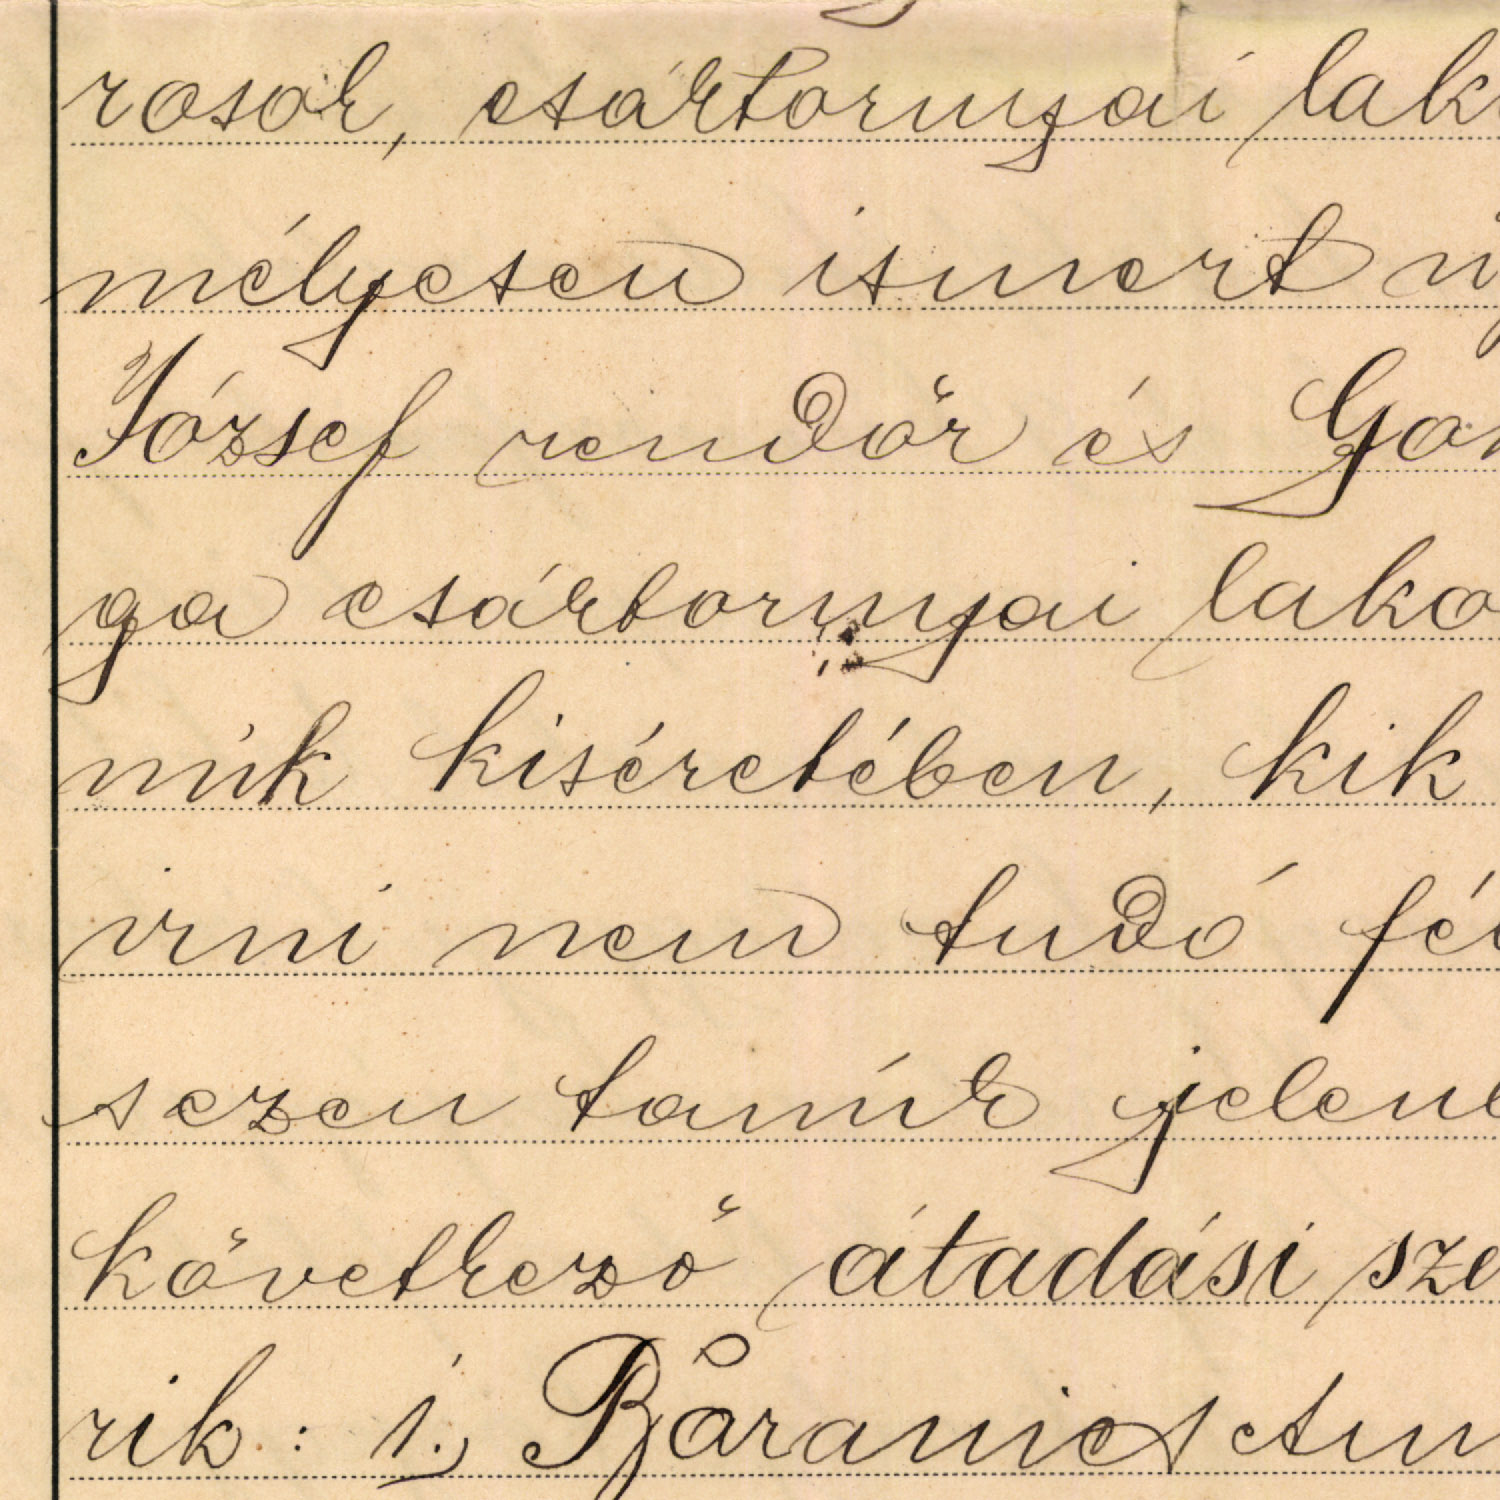 rosok, csáktornyai lak
mélyesen ismert
József rendőr és
ga csáktornyai lako
núk kiséretében, kik
irni nem tudó
sezen tanúk jelen
következő átadási sze
rik: 1. Báranics